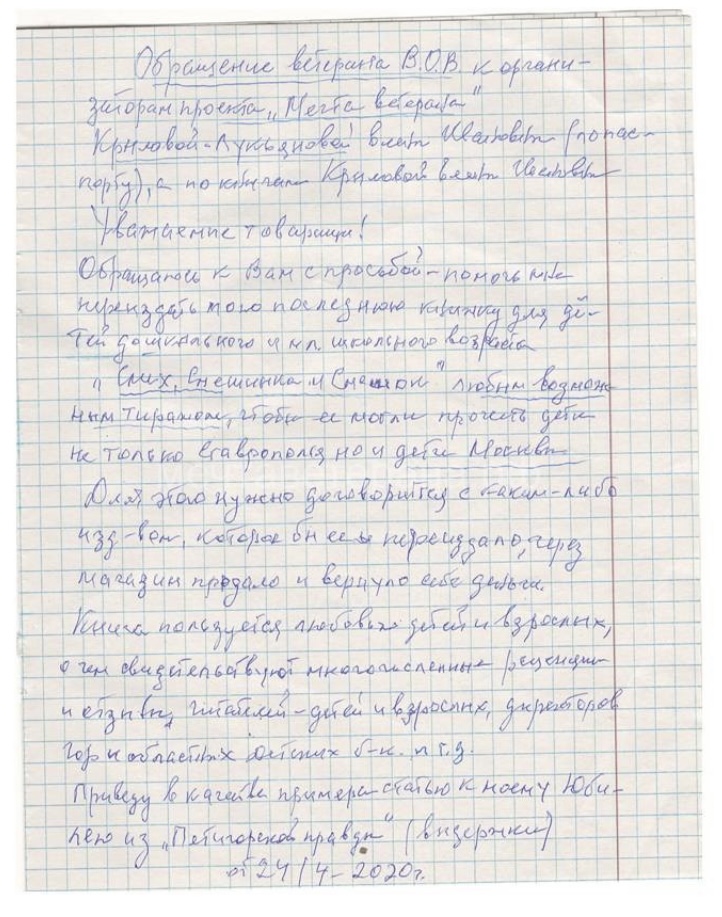 Обращение ветерана В.О.В. к органи-
заторам проекта „Мечта ветерана"
Крыловой-Лукьяновой Ивановны (по пас-
порту), а по книгам Крыловой Ивановны
Уважаемые товарищи!
Обращаюсь к Вам с просьбой - помочь мне
переиздать мою последнюю книжку для де-
тей дошкольного и мл. школьного возраста
„Смех, Смешинка и Смешок" любым возмож-
ным тиражом, чтобы ее могли прочесть дети
не только Ставрополья но и дети Москвы
Для этого нужно договорится с каким-либо
изд-вом, которое бы ее переиздало, через
магазин продало и вернуло себе деньги.
Книга пользуется любовью детей и взрослых,
о чем свидетельствуют многочисленные рецензии
и отзывы читателей - детей и взрослых, директоров
гор и областных детских б-к. и т.д.
Приведу в качестве примера статью к моему Юби-
лею из „Пятигорской правды" (выдержки)
от 24/4-2020г.